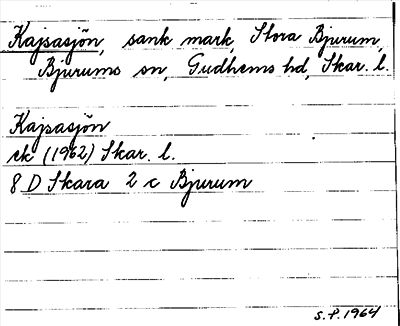 Kajsasjön, sank mark, Stora Bjurum,
Bjurums sn, Gudhems hd, Skar. l.
Kajsasjön
ek (1962) Skar. l.
8 D Skara 2 c Bjurum
S.P. 1964